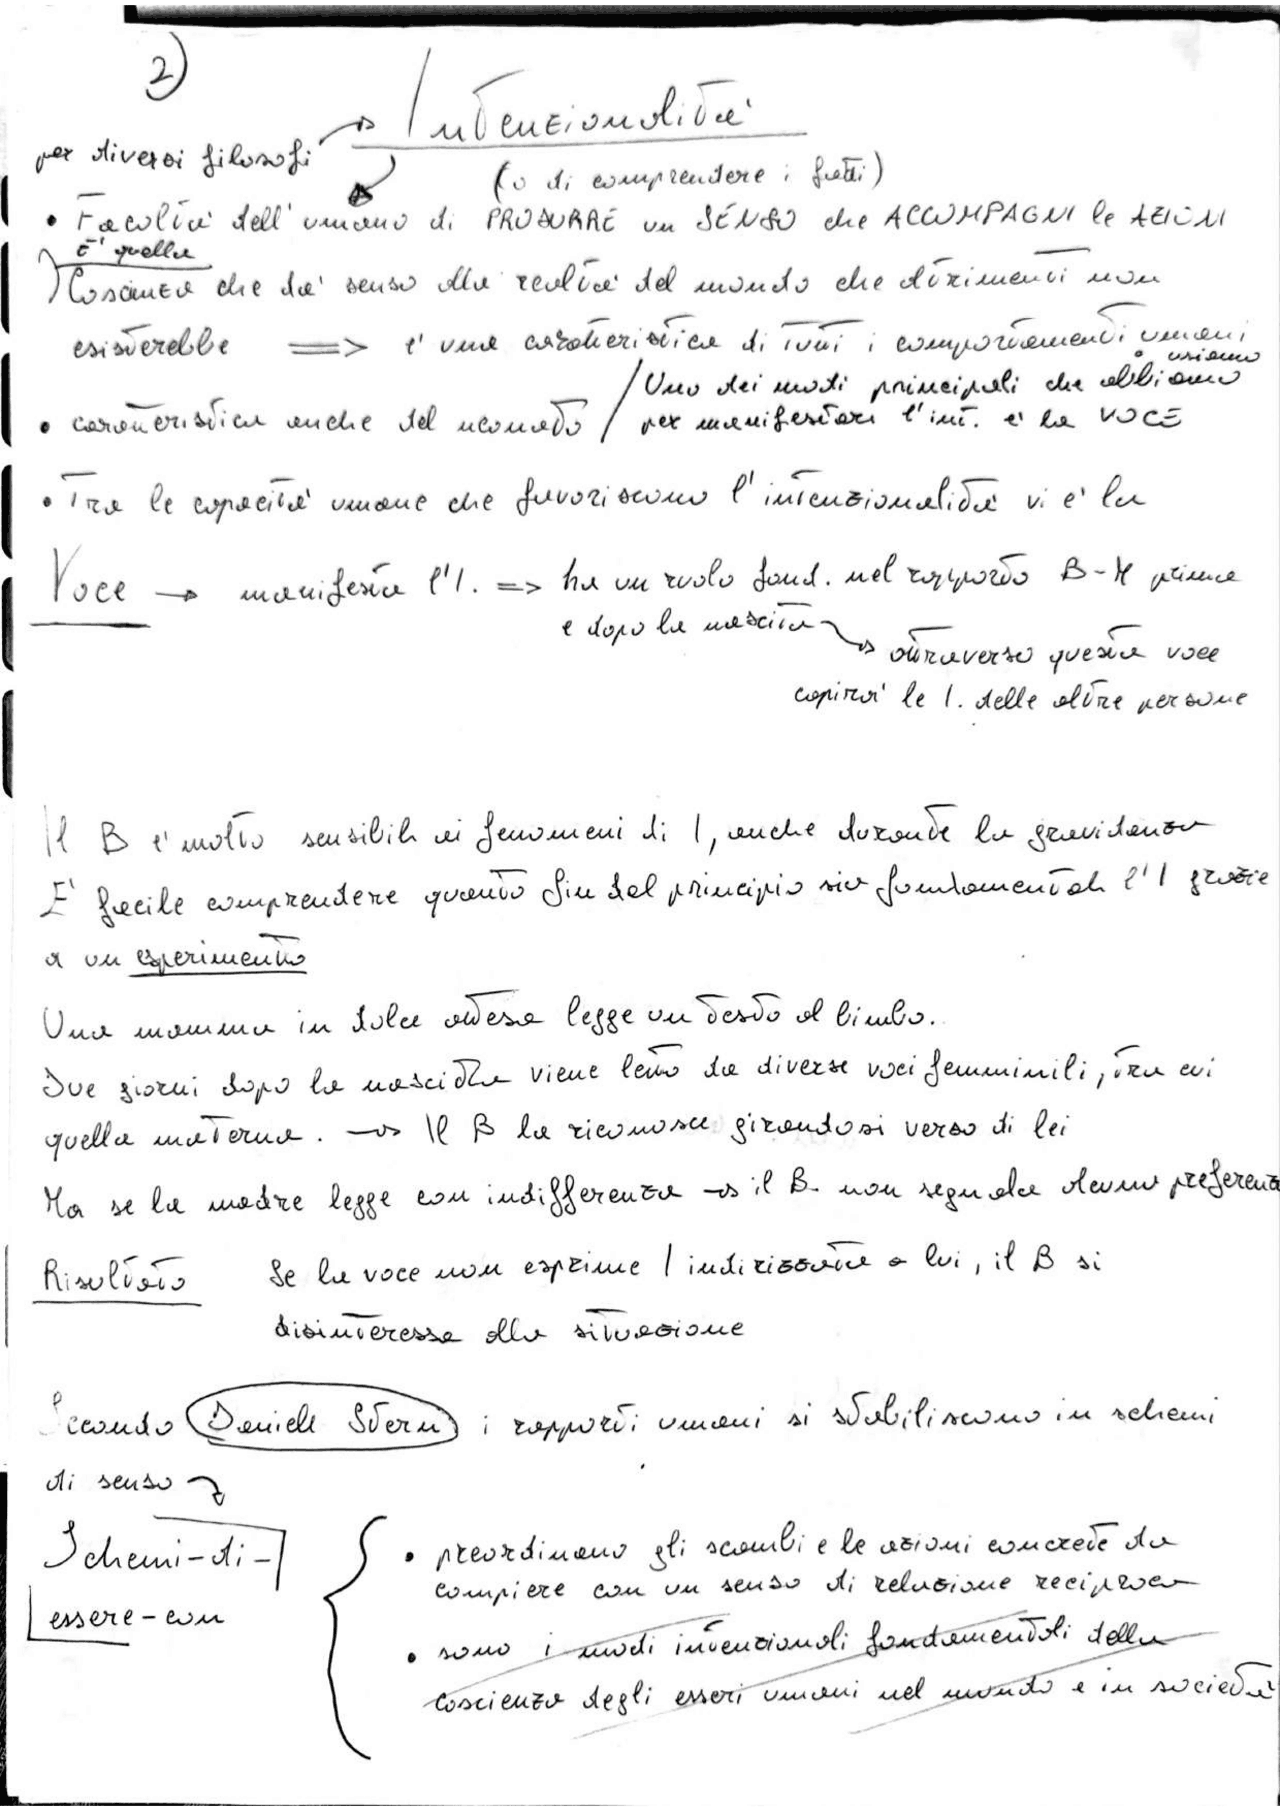 2)
Intenzionalità
per diversi filosofi
(o di comprendere i fatti)
• Facoltà dell'umano di PRODURRE un SENSO che ACCOMPAGNI le AZIONI
E' quella
Coscienza che da' senso alla realtà del mondo che altrimenti non
esisterebbe => e' una caratteristica di tutti i comportamenti umani
• caratteristica anche del neonato / Uno dei modi principali che abbiamo
o usiamo
per manifestare l'int. e' la VOCE
• Tra le capacità umane che favoriscono l'intenzionalità vi e' la
Voce → manifesta l'I. => ha un ruolo fond. nel rapporto B-M prima
e dopo la nascita → attraverso questa voce
capira' le I. delle altre persone
Il B e' molto sensibile ai fenomeni di I, anche durante la gravidanza
E' facile comprendere quanto fin dal principio sia fondamentale l'I grazie
a un esperimento
Una mamma in dolce attesa legge un testo al bimbo.
Due giorni dopo la nascita viene letto da diverse voci femminili, tra cui
quella materna. → Il B la riconosce girandosi verso di lei
Ma se la madre legge con indifferenza → il B. non segnala alcuna preferenza
Risultato Se la voce non esprime I indirizzata a lui, il B si
disinteressa alla situazione
Secondo Daniele Stern i rapporti umani si stabiliscono in schemi
di senso
Schemi-di-
essere-con
• preordinano gli scambi e le azioni concrete da
compiere con un senso di relazione reciproca
• sono i modi intenzionali fondamentali della
coscienza degli esseri umani nel mondo e in società